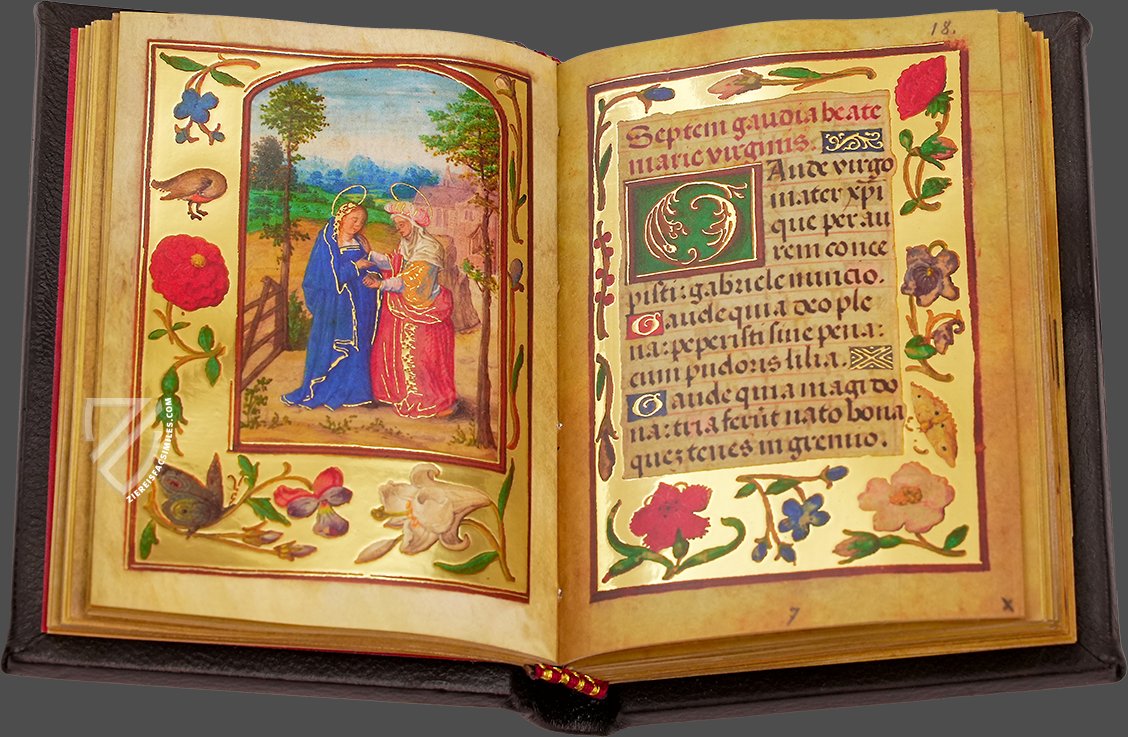 ZIEREISFACSIMILES.COM
18.
Septem gaudia beate
marie virginis.
Gaude virgo
mater xpi
que per au
rem conce
pisti: gabriele nuncio.
Gaude quia deo ple
na: peperisti sine pena:
cum pudoris lilia.
Gaude quia magi do
na: tria ferūt nato bona
quez tenes in gremio.
7
x